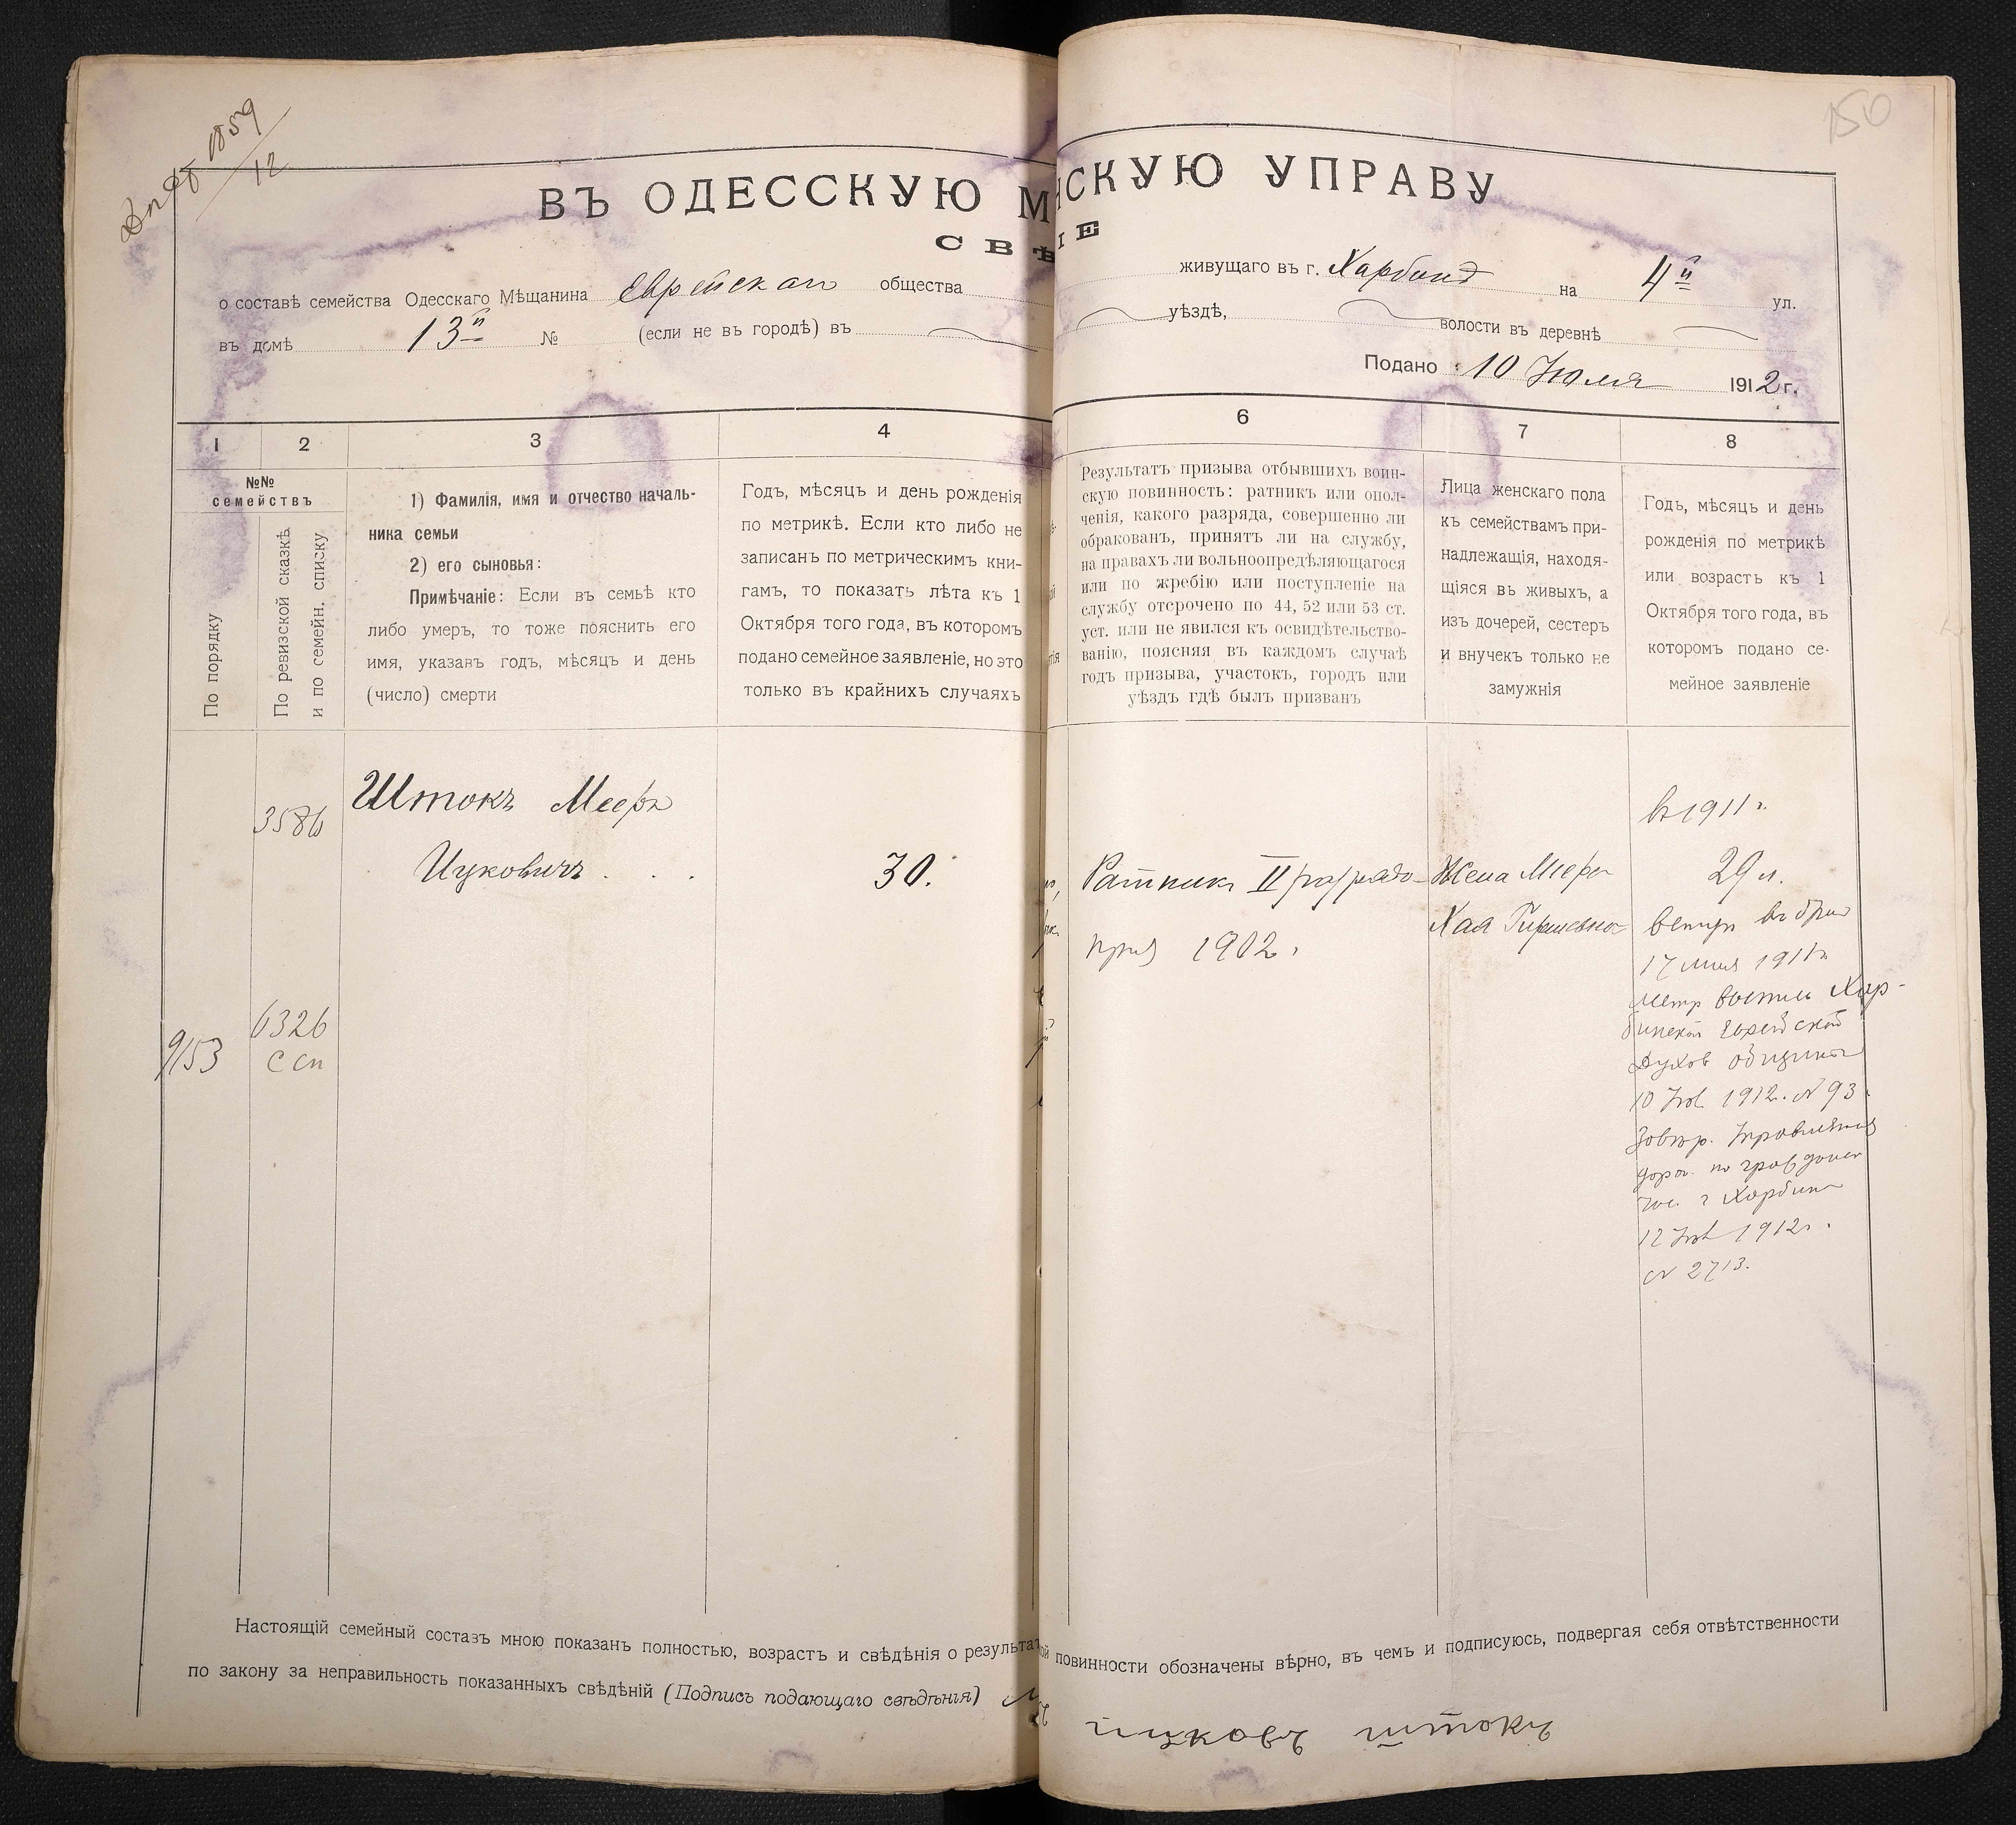 1859
12
150
ВЪ ОДЕССКУЮ М НСКУЮ УПРАВУ
СВѢ IE
о составѣ семейства Одесскаго Мѣщанина Еврейскаго общества живущаго въ г. Харбинѣ на 4й ул.
въ домѣ 13й № (если не въ городѣ) въ уѣздѣ, волости въ деревнѣ
Подано 10 Июля 1912 г.
1 2 3 4 6 7 8
№№
семействъ
По порядку
По ревизской сказкѣ
и по семейн. списку.
1) Фамилія, имя и отчество началь-
ника семьи
2) его сыновья:
Примѣчаніе: Если въ семьѣ кто
либо умеръ, то тоже пояснить его
имя, указавъ годъ, мѣсяцъ и день
(число) смерти
Годъ, мѣсяцъ и день рожденія
по метрикѣ. Если кто либо не
записанъ по метрическимъ кни-
гамъ, то показать лѣта къ 1
Октября того года, въ которомъ
подано семейное заявленіе, но это
только въ крайнихъ случаяхъ
Результатъ призыва отбывшихъ воин-
скую повинность: ратникъ или опол-
ченія, какого разряда, совершенно ли
обракованъ, принятъ ли на службу,
на правахъ ли вольноопредѣляющагося
или по жребію или поступленіе на
службу отсрочено по 44, 52 или 53 ст.
уст. или не явился къ освидѣтельство-
ванію, поясняя въ каждомъ случаѣ
годъ призыва, участокъ, городъ или
уѣздъ гдѣ былъ призванъ
Лица женскаго пола
къ семействамъ при-
надлежащія, находя-
щіяся въ живыхъ, а
изъ дочерей, сестеръ
и внучекъ только не
замужнія
Годъ, мѣсяцъ и день
рожденія по метрикѣ
или возрастъ къ 1
Октября того года, въ
которомъ подано се-
мейное заявленіе
3586
Штокъ Мееръ
Ицковичъ . . .
30.
Ратникъ II разряда
приз 1902 г.
Жена Меера
Хая Гершевна
въ 1911 г.
29 л.
вступ въ брак
17 мая 1911 г.
метр выпись Хар-
бинской Еврейской
Духов общины
10 1912 г. № 93.
Управленія
г Харбина
12 1912 г.
№ 2713.
9153
6326
С сп
Настоящій семейный составъ мною показанъ полностью, возрастъ и свѣдѣнія о результат ой повинности обозначены вѣрно, въ чемъ и подписуюсь, подвергая себя отвѣтственности
по закону за неправильность показанныхъ свѣдѣній (Подпись подающаго свѣдѣнія)
ицковъ штокъ